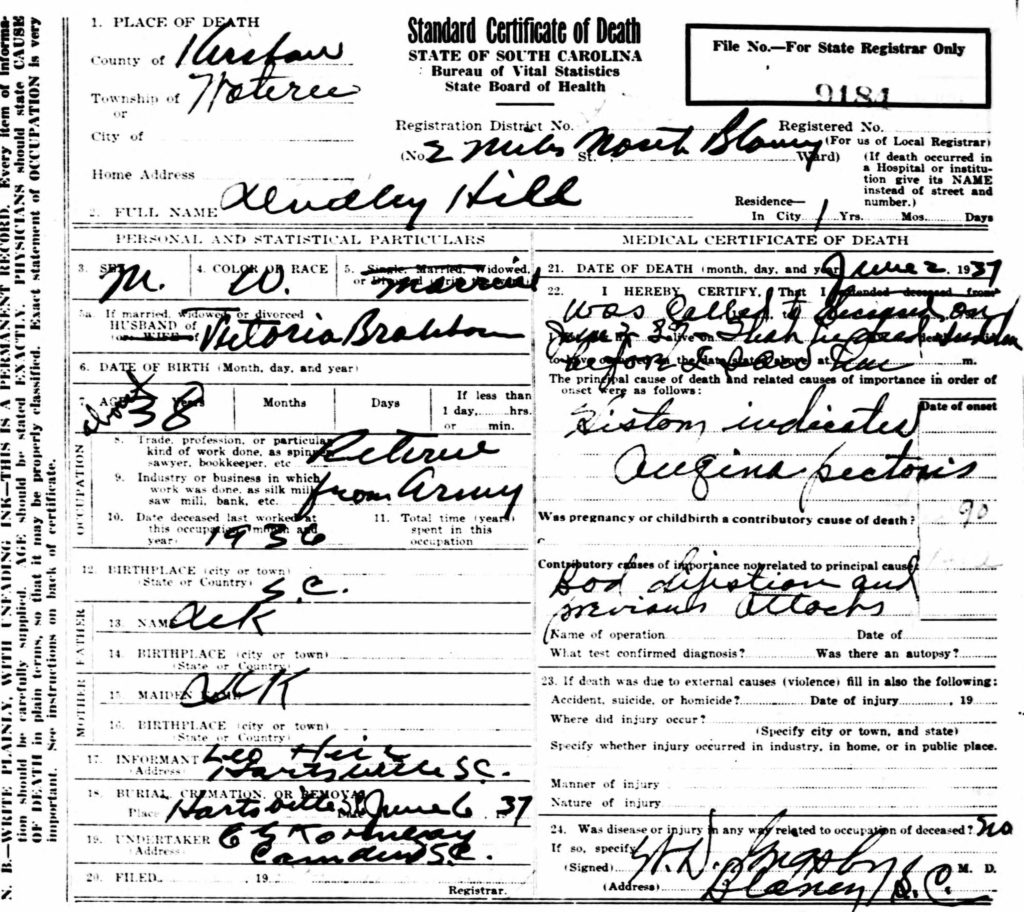 N. B.—WRITE PLAINLY, WITH UNFADING INK—THIS IS A PERMANENT RECORD. Every item of information should be carefully supplied. AGE should be stated EXACTLY. PHYSICIANS should state CAUSE OF DEATH in plain terms, so that it may be properly classified. Exact statement of OCCUPATION is very important. See instructions on back of certificate.
1. PLACE OF DEATH
County of Kershaw
Township of Wateree
or
City of
Home Address
Standard Certificate of Death
STATE OF SOUTH CAROLINA
Bureau of Vital Statistics
State Board of Health
File No.—For State Registrar Only
9184
Registration District No.
Registered No.
(For us of Local Registrar)
(No. 2 miles North Blaney St. Ward)
(If death occurred in a Hospital or institution give its NAME instead of street and number.)
2. FULL NAME Hill
Residence—
In City 1 Yrs. Mos. Days
PERSONAL AND STATISTICAL PARTICULARS
3. SEX M.
4. COLOR OR RACE W.
5. Single, Married, Widowed, or Married
5a. If married, widowed or divorced
HUSBAND of Victoria
(or) WIFE of
6. DATE OF BIRTH (Month, day, and year)
7. AGE about 38 Years
Months
Days
If less than
1 day, hrs.
or min.
OCCUPATION
8. Trade, profession, or particular kind of work done, as spinner, sawyer, bookkeeper, etc. Retired
9. Industry or business in which work was done, as silk mill, saw mill, bank, etc. from Army
10. Date deceased last worked at this occupation (month and year) 1936
11. Total time (years) spent in this occupation
12. BIRTHPLACE (city or town)
(State or Country) S.C.
FATHER
13. NAME
14. BIRTHPLACE (city or town)
(State or Country)
MOTHER
15. MAIDEN NAME
16. BIRTHPLACE (city or town)
(State or Country)
17. INFORMANT Leo Hill
(Address) Hartsville S.C.
18. BURIAL, CREMATION, OR REMOVAL
Place Hartsville June 6 37
19. UNDERTAKER
(Address) Camden S.C.
20. FILED , 19
Registrar.
MEDICAL CERTIFICATE OF DEATH
21. DATE OF DEATH (month, day, and year) June 2, 1937
22. I HEREBY CERTIFY, That I attended deceased from
was called to deceased on
June 2 37
before I saw him
The principal cause of death and related causes of importance in order of onset were as follows:
Date of onset
indicates
angina pectoris
90
Was pregnancy or childbirth a contributory cause of death?
Contributory causes of importance not related to principal cause:
Bad digestion and
previous attacks
Name of operation Date of
What test confirmed diagnosis? Was there an autopsy?
23. If death was due to external causes (violence) fill in also the following:
Accident, suicide, or homicide? Date of injury , 19
Where did injury occur?
(Specify city or town, and state)
Specify whether injury occurred in industry, in home, or in public place.
Manner of injury
Nature of injury
24. Was disease or injury in any way related to occupation of deceased? no
If so, specify
(Signed) W. D. Grigsby M. D.
(Address) Blaney S.C.